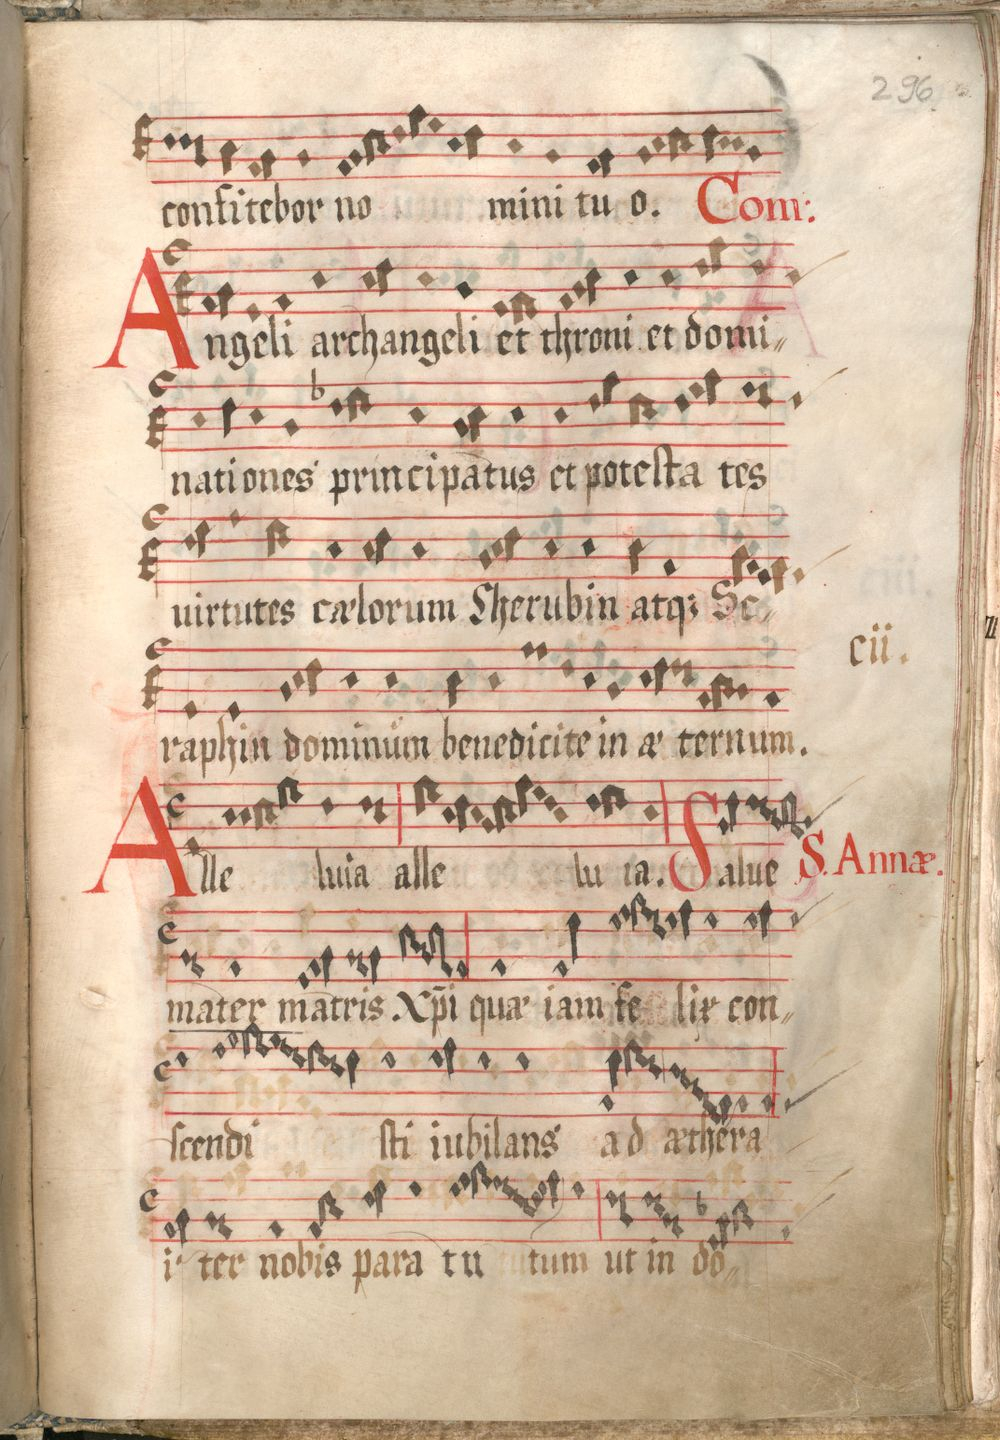 296
confitebor no mini tu o. Com:
Angeli archangeli et throni et domi„
nationes principatus et potesta tes
uirtutes cælorum Sherubin atq; Se„
cii.
raphin dominum benedicite in æ ternum.
Alle luia alle lu ia. Salue S. Annæ.
mater matris Xp̄i quæ iam fe lix con„
scendi sti iubilans ad æthera
i ter nobis para tu tutum ut in do„